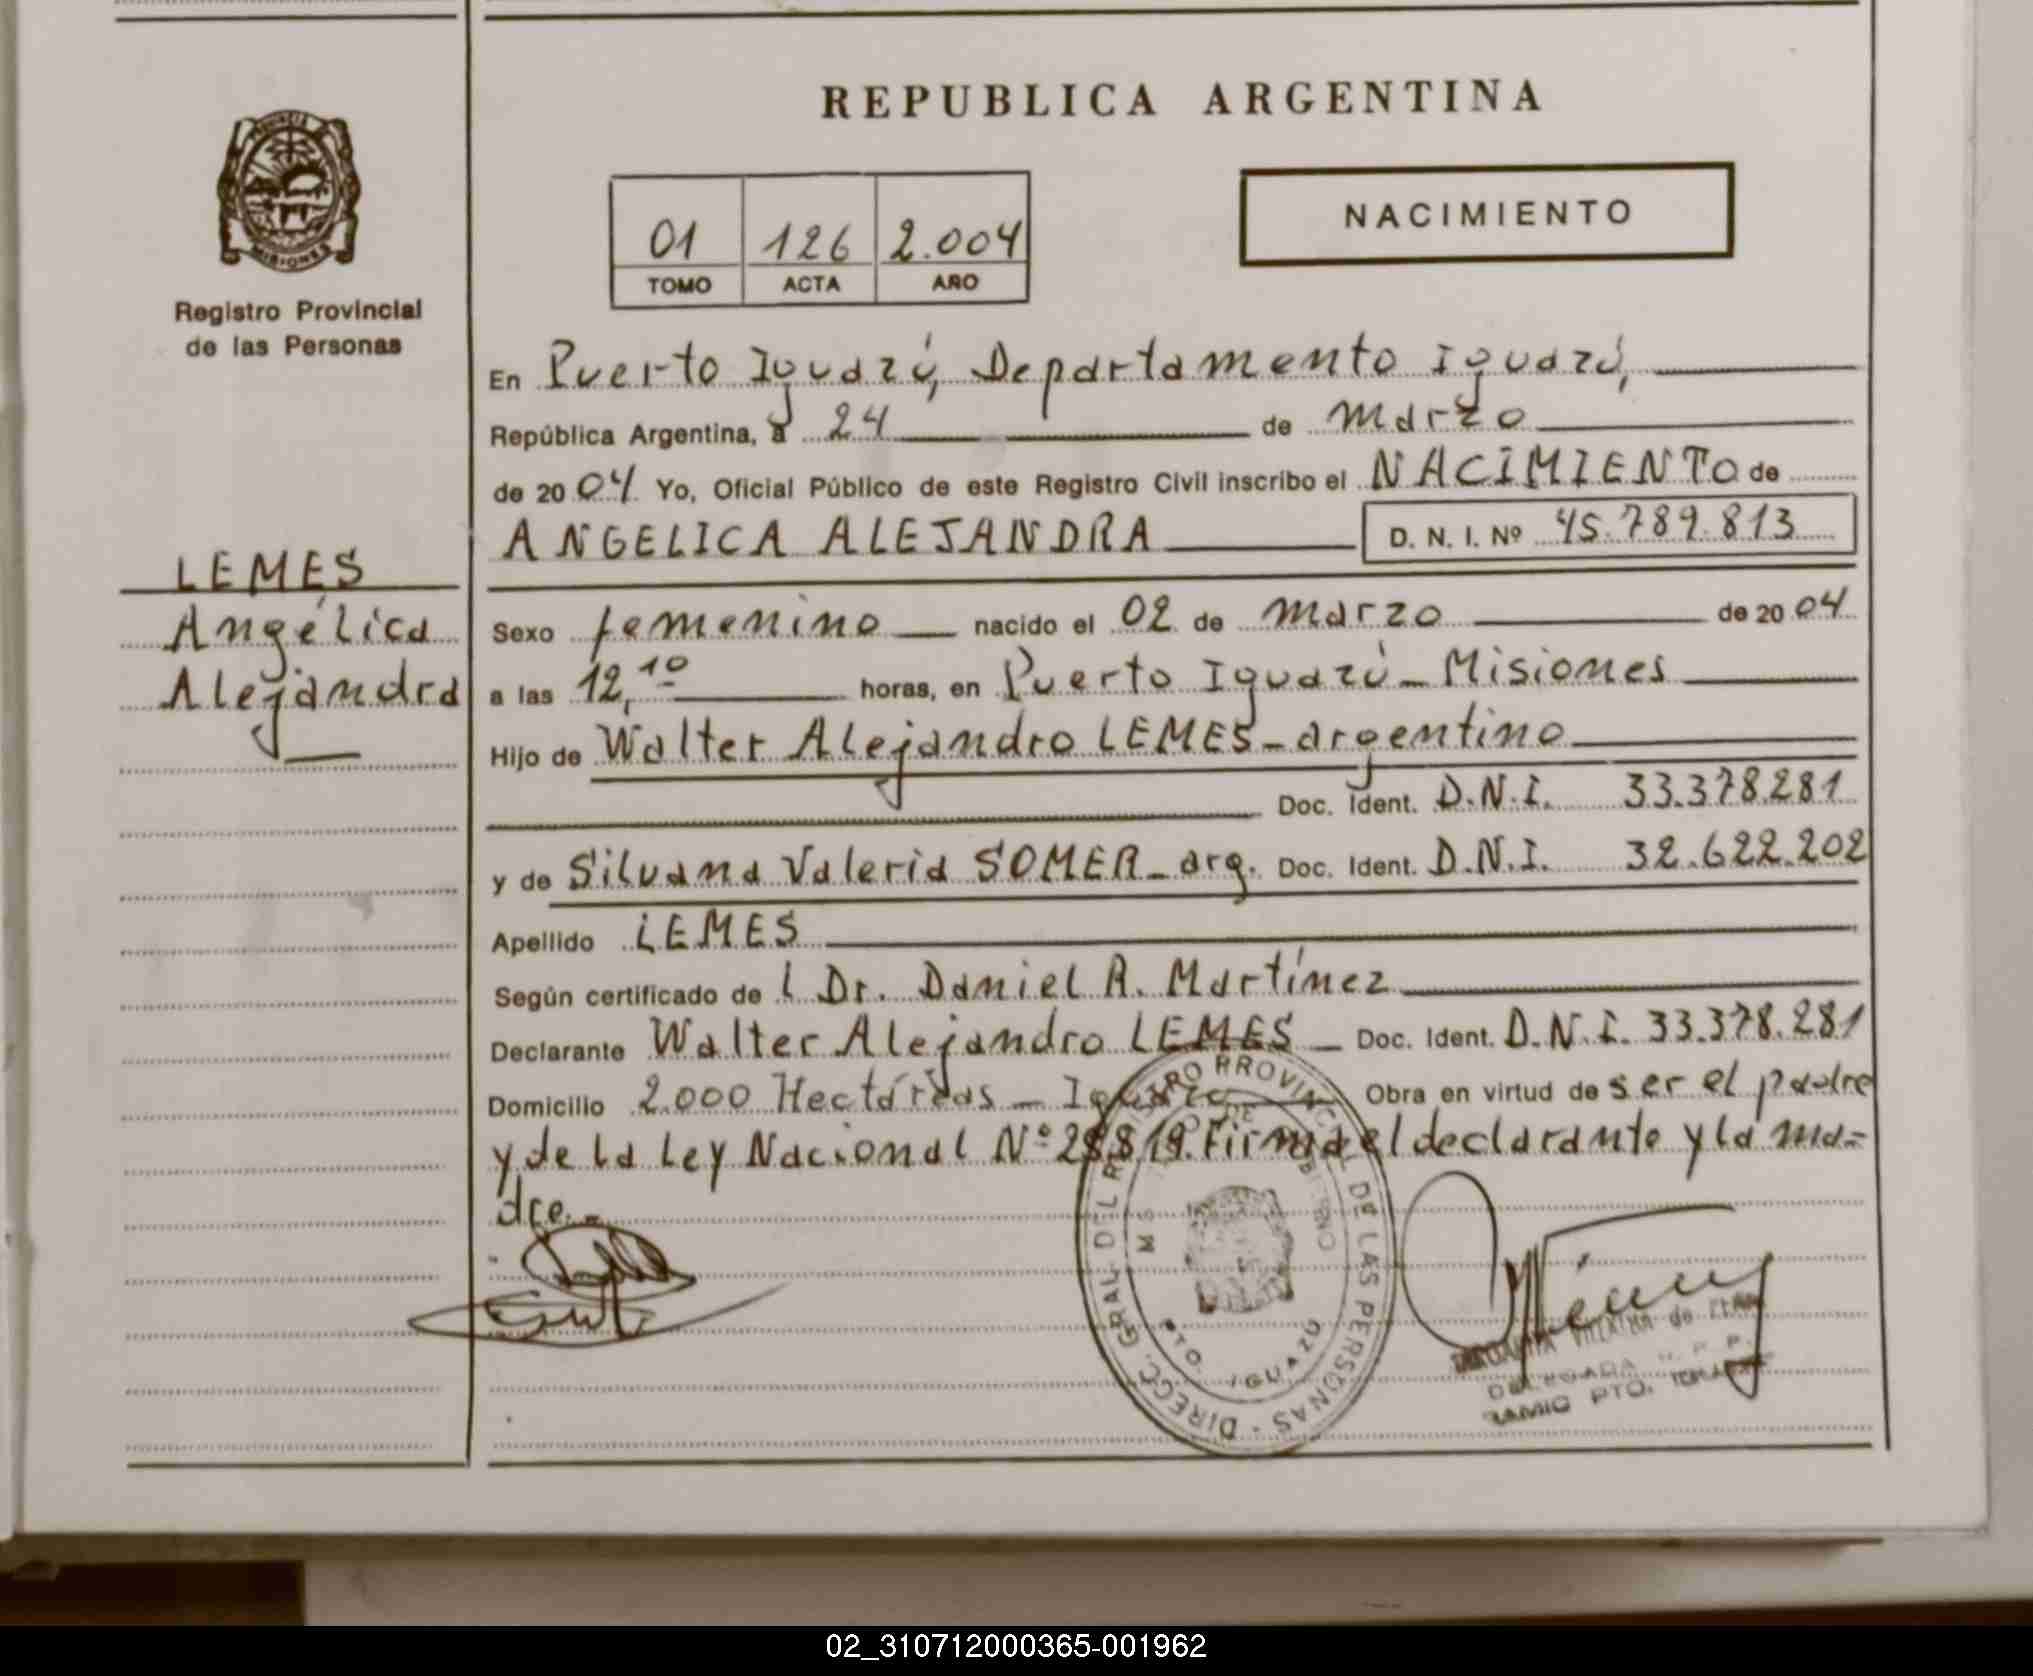 REPUBLICA ARGENTINA
NACIMIENTO
01 126 2.004
TOMO ACTA AÑO
PROVINCIA DE MISIONES
Registro Provincial
de las Personas
LEMES
Angélica
Alejandra
En Puerto Iguazú, Departamento Iguazú,
República Argentina, a 24 de marzo
de 20 04 Yo, Oficial Público de este Registro Civil inscribo el NACIMIENTO de
ANGELICA ALEJANDRA D. N. I. Nº 45.789.813
Sexo femenino nacido el 02 de marzo de 20 04
a las 12,10 horas, en Puerto Iguazú - Misiones
Hijo de Walter Alejandro LEMES - argentino
Doc. Ident. D.N.I. 33.378.281
y de Silvana Valeria SOMER - arg. Doc. Ident. D.N.I. 32.622.202
Apellido LEMES
Según certificado de l Dr. Daniel R. Martínez
Declarante Walter Alejandro LEMES - Doc. Ident. D.N.I. 33.378.281
Domicilio 2.000 Hectáreas - Iguazú Obra en virtud de ser el padre
y de la Ley Nacional Nº 25.819. Firma el declarante y la ma-
dre.-
DIRECC. GRAL DEL REGISTRO PROVINCIAL DE LAS PERSONAS
PTO. IGUAZU
de
DELEGADA R. P. P.
PTO.
02_310712000365-001962